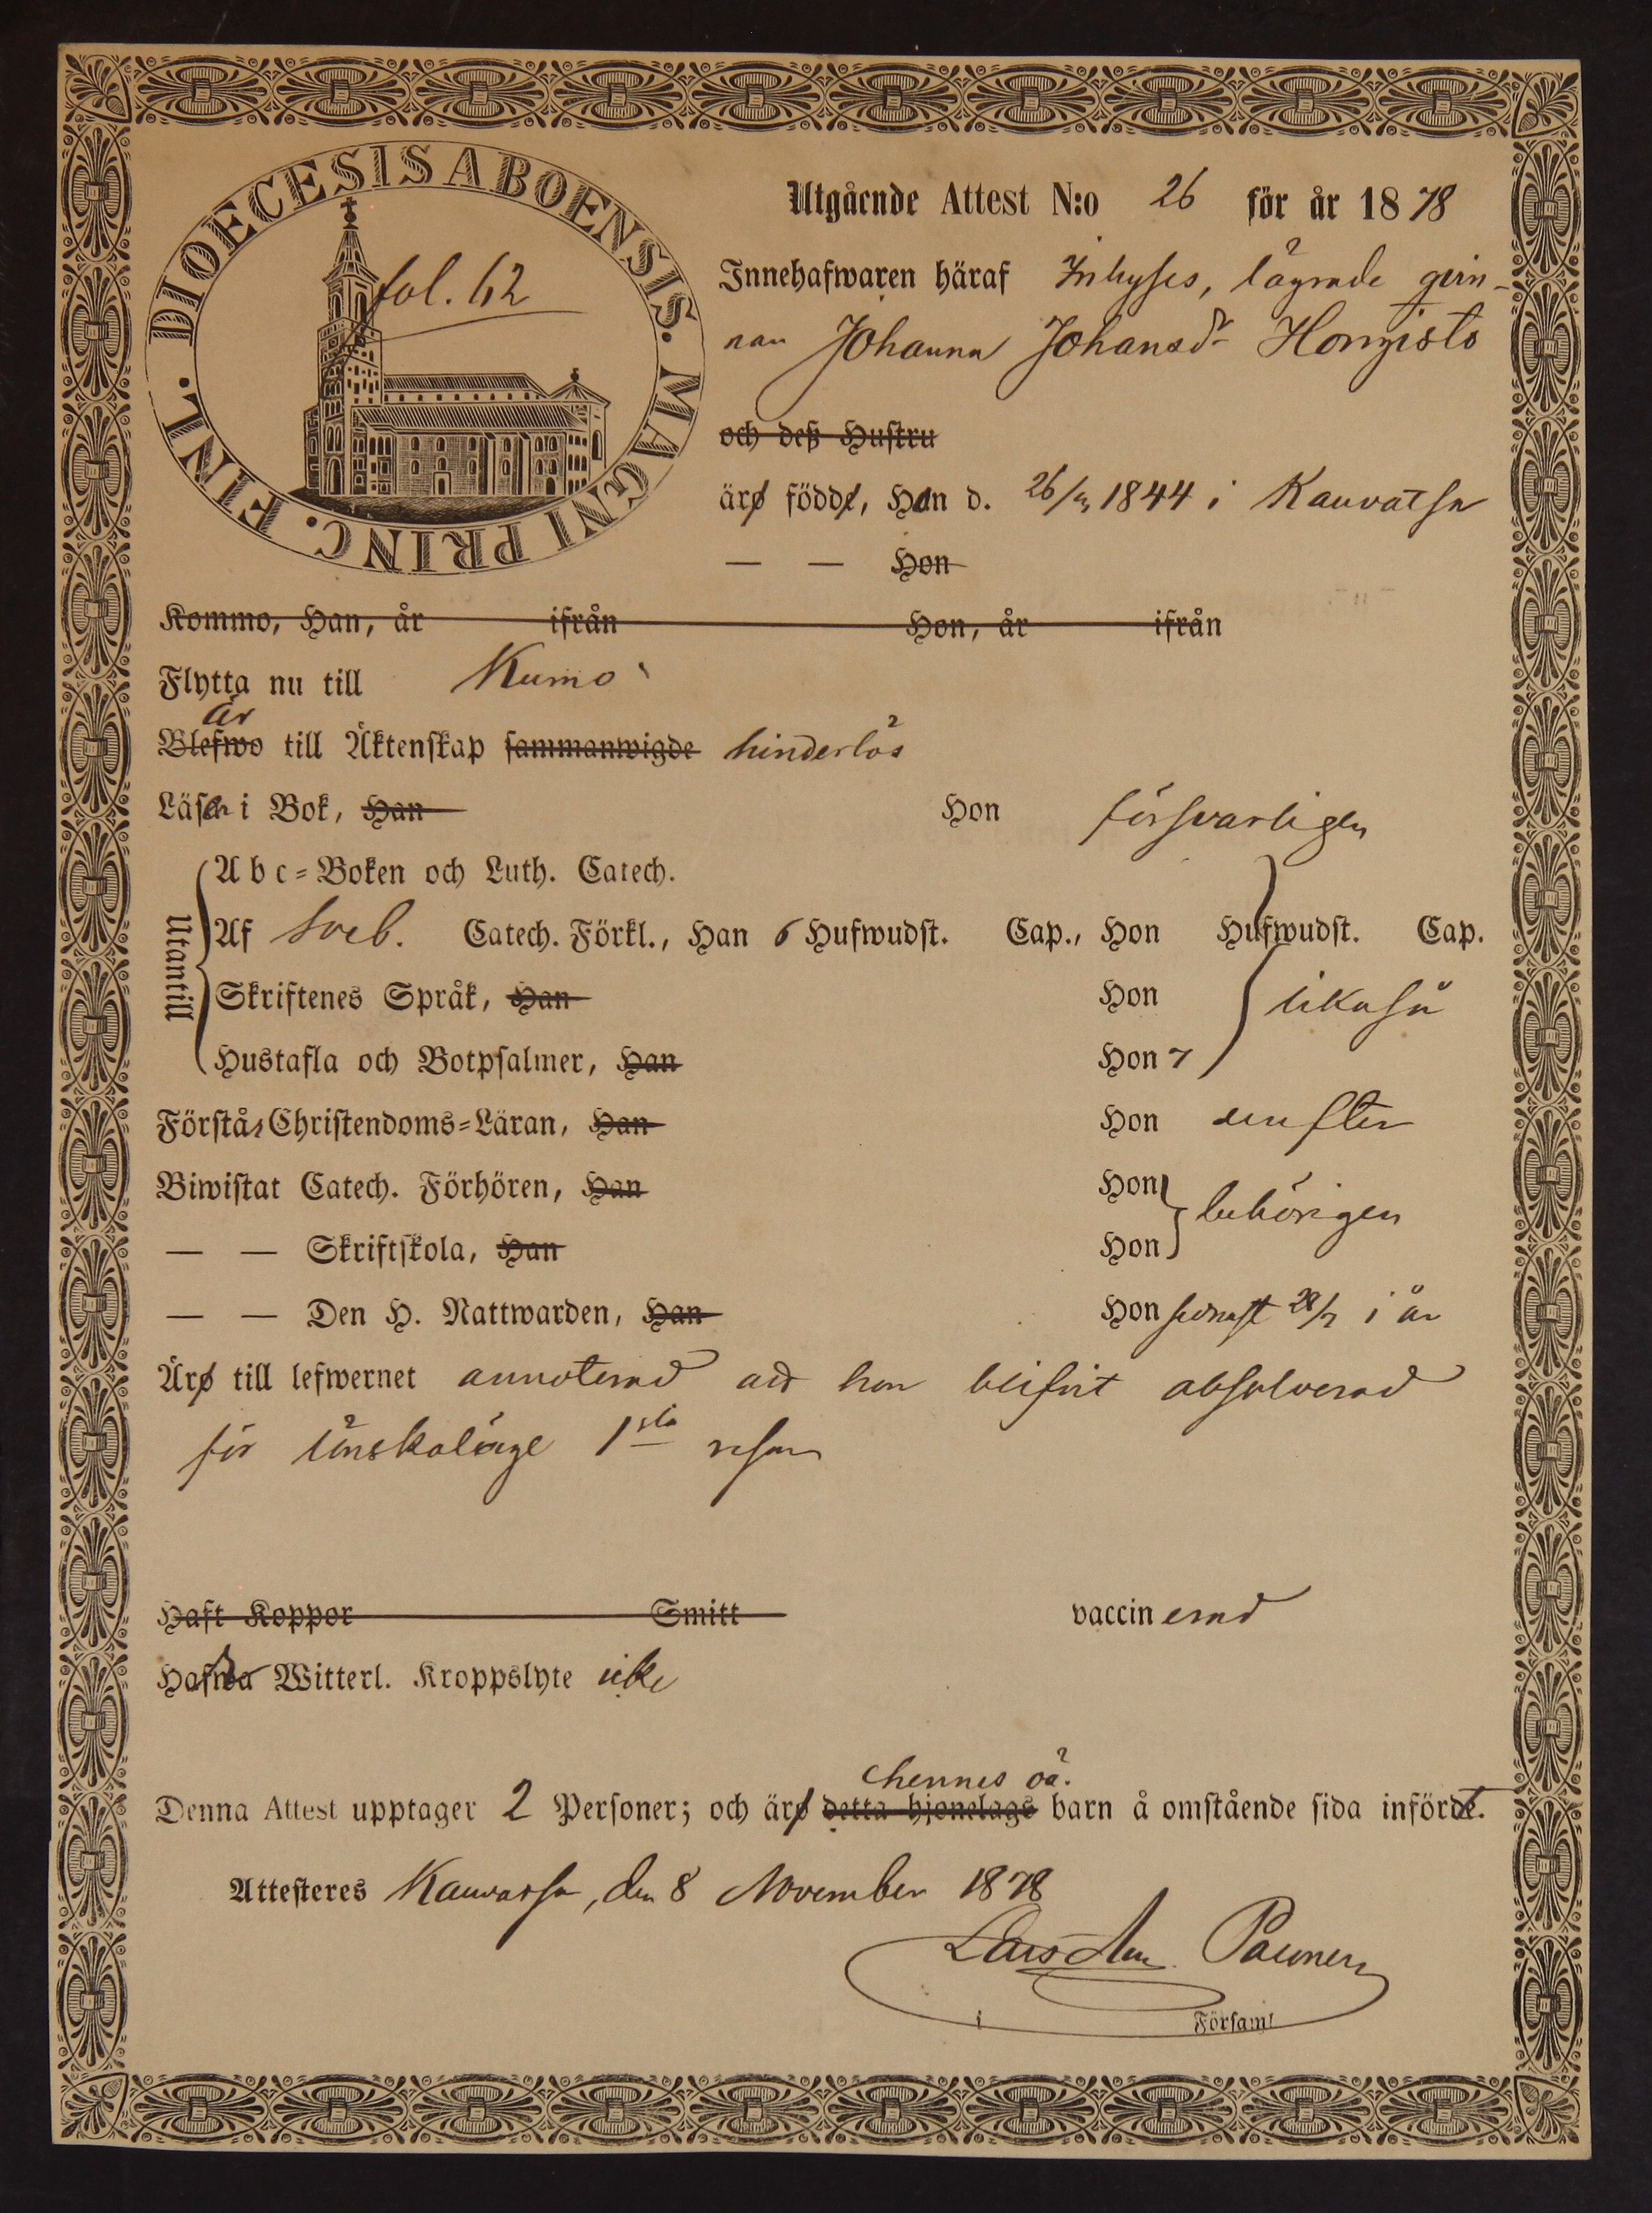 DIOECESIS ABOENSIS. MAGNI PRINC. FINL.
fol. 62
Utgående Attest N:o 26 för år 1878
Innehafwaren häraf Inhyses, lägrade qvin-
nan Johanna Johansdr Hongisto
och deß Hustru
äro födde, Hon d. 26/ 1844 i Kauvatsa
— — Hon
Kommo, Han, år ifrån Hon, år ifrån
Flytta nu till Kumo
är
Blefwo till Äktenskap sammanwigde hinderlös
Läser i Bok, Han Hon försvarligen
Utantill
Abc-Boken och Luth. Catech.
Af Sveb. Catech. Förkl., Han Hufwudst. Cap., Hon Hufwudst. Cap.
Skriftenes Språk, Han Hon likaså
Hustafla och Botpsalmer, Han Hon
Förstår Christendoms-Läran, Han Hon
Biwistat Catech. Förhören, Han Hon behörigen
— — Skriftskola, Han Hon
— — Den H. Nattwarden, Han Hon senast 28/7 i år
Äro till lefwernet annoterad att hon blifvit absolverad
för lönskaläge 1sta resan
Haft Koppor Smitt vaccinerad
Hafwa Witterl. Kroppslyte icke
hennes oä.
Denna Attest upptager 2 Personer; och äro detta hjonelags barn å omstående sida infördt.
Attesteres Kauvatsa, den 8 November 1878
Lars
i Församl